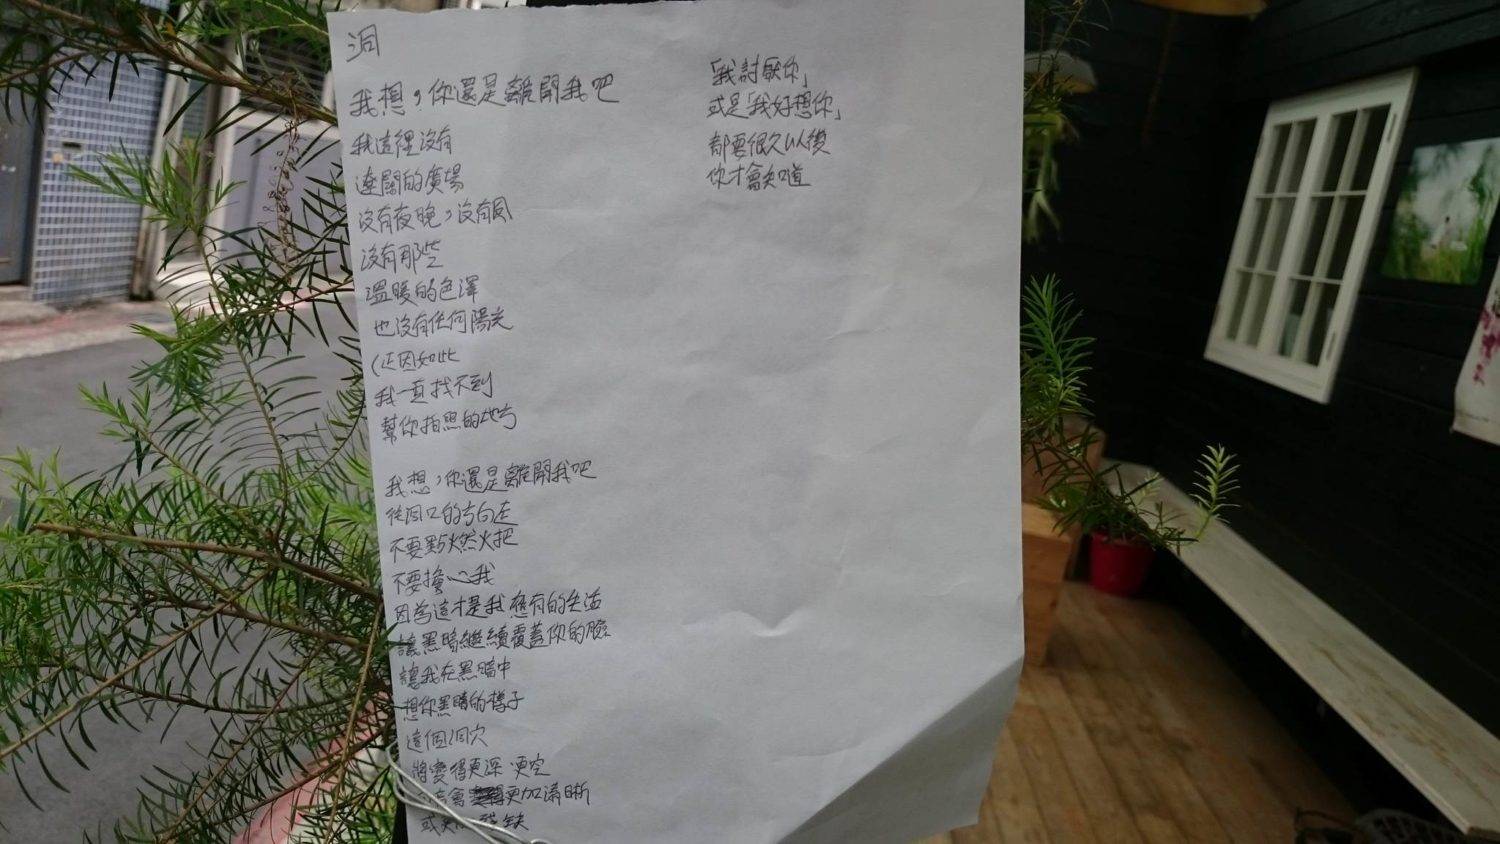 洞
我想，你還是離開我吧
我這裡沒有
遼闊的廣場
沒有夜晚，沒有風
沒有那些
溫暖的色澤
也沒有任何陽光
(正因如此
我一直找不到
幫你拍照的地方
我想，你還是離開我吧
從洞口的方向走
不要點燃火把
不要擔心我
因為這才是我應有的生活
讓黑暗繼續覆蓋你的臉
讓我在黑暗中
想你黑暗的樣子
這個洞穴
將變得更深 更空
會更加清晰
或 殘缺
「我討厭你」
或是「我好想你」
都要很久以後
你才會知道